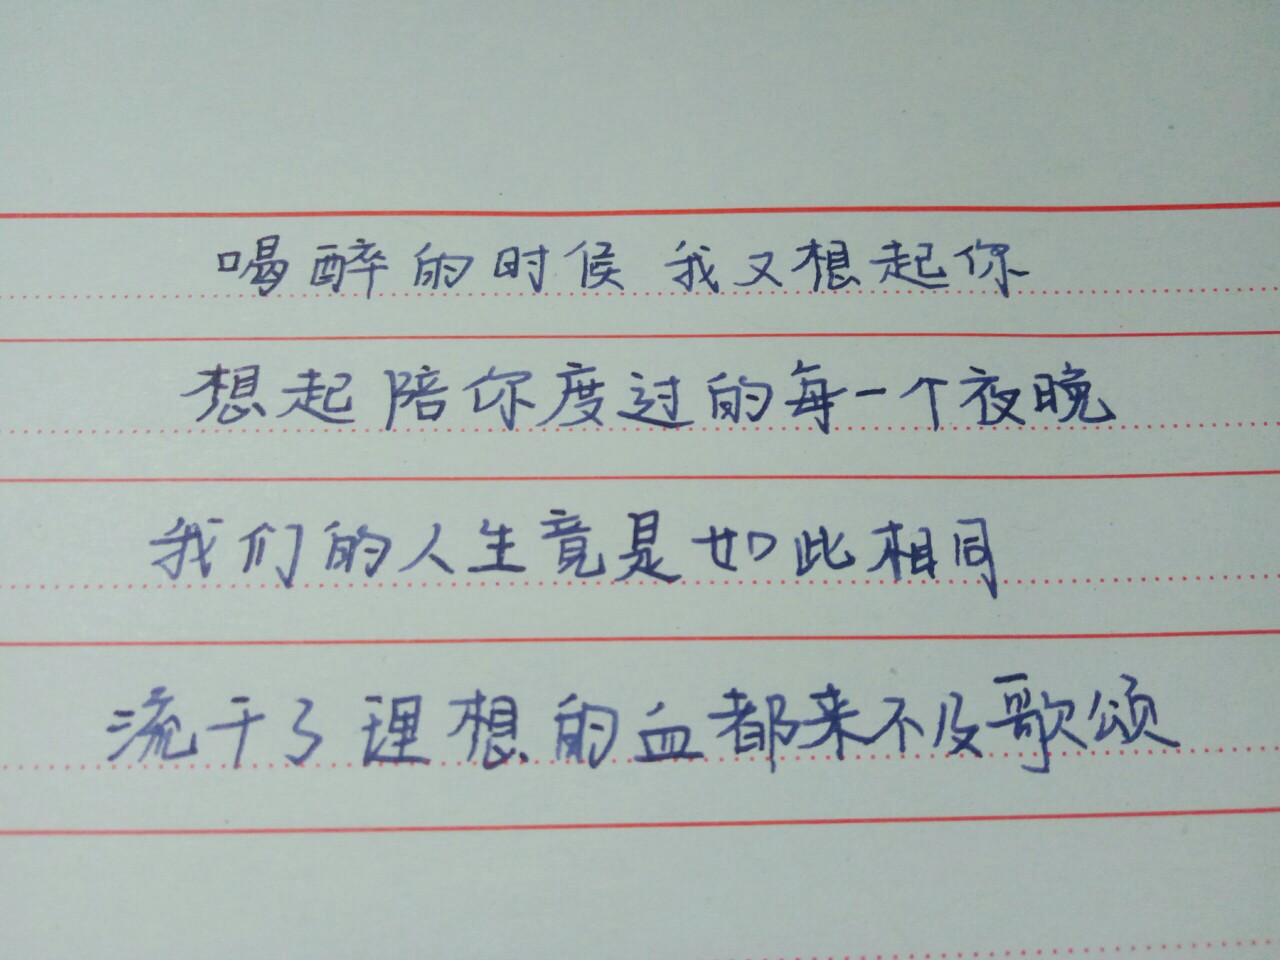 喝醉的时候 我又想起你
想起陪你度过的每一个夜晚
我们的人生竟是如此相同
流干了理想的血都来不及歌颂